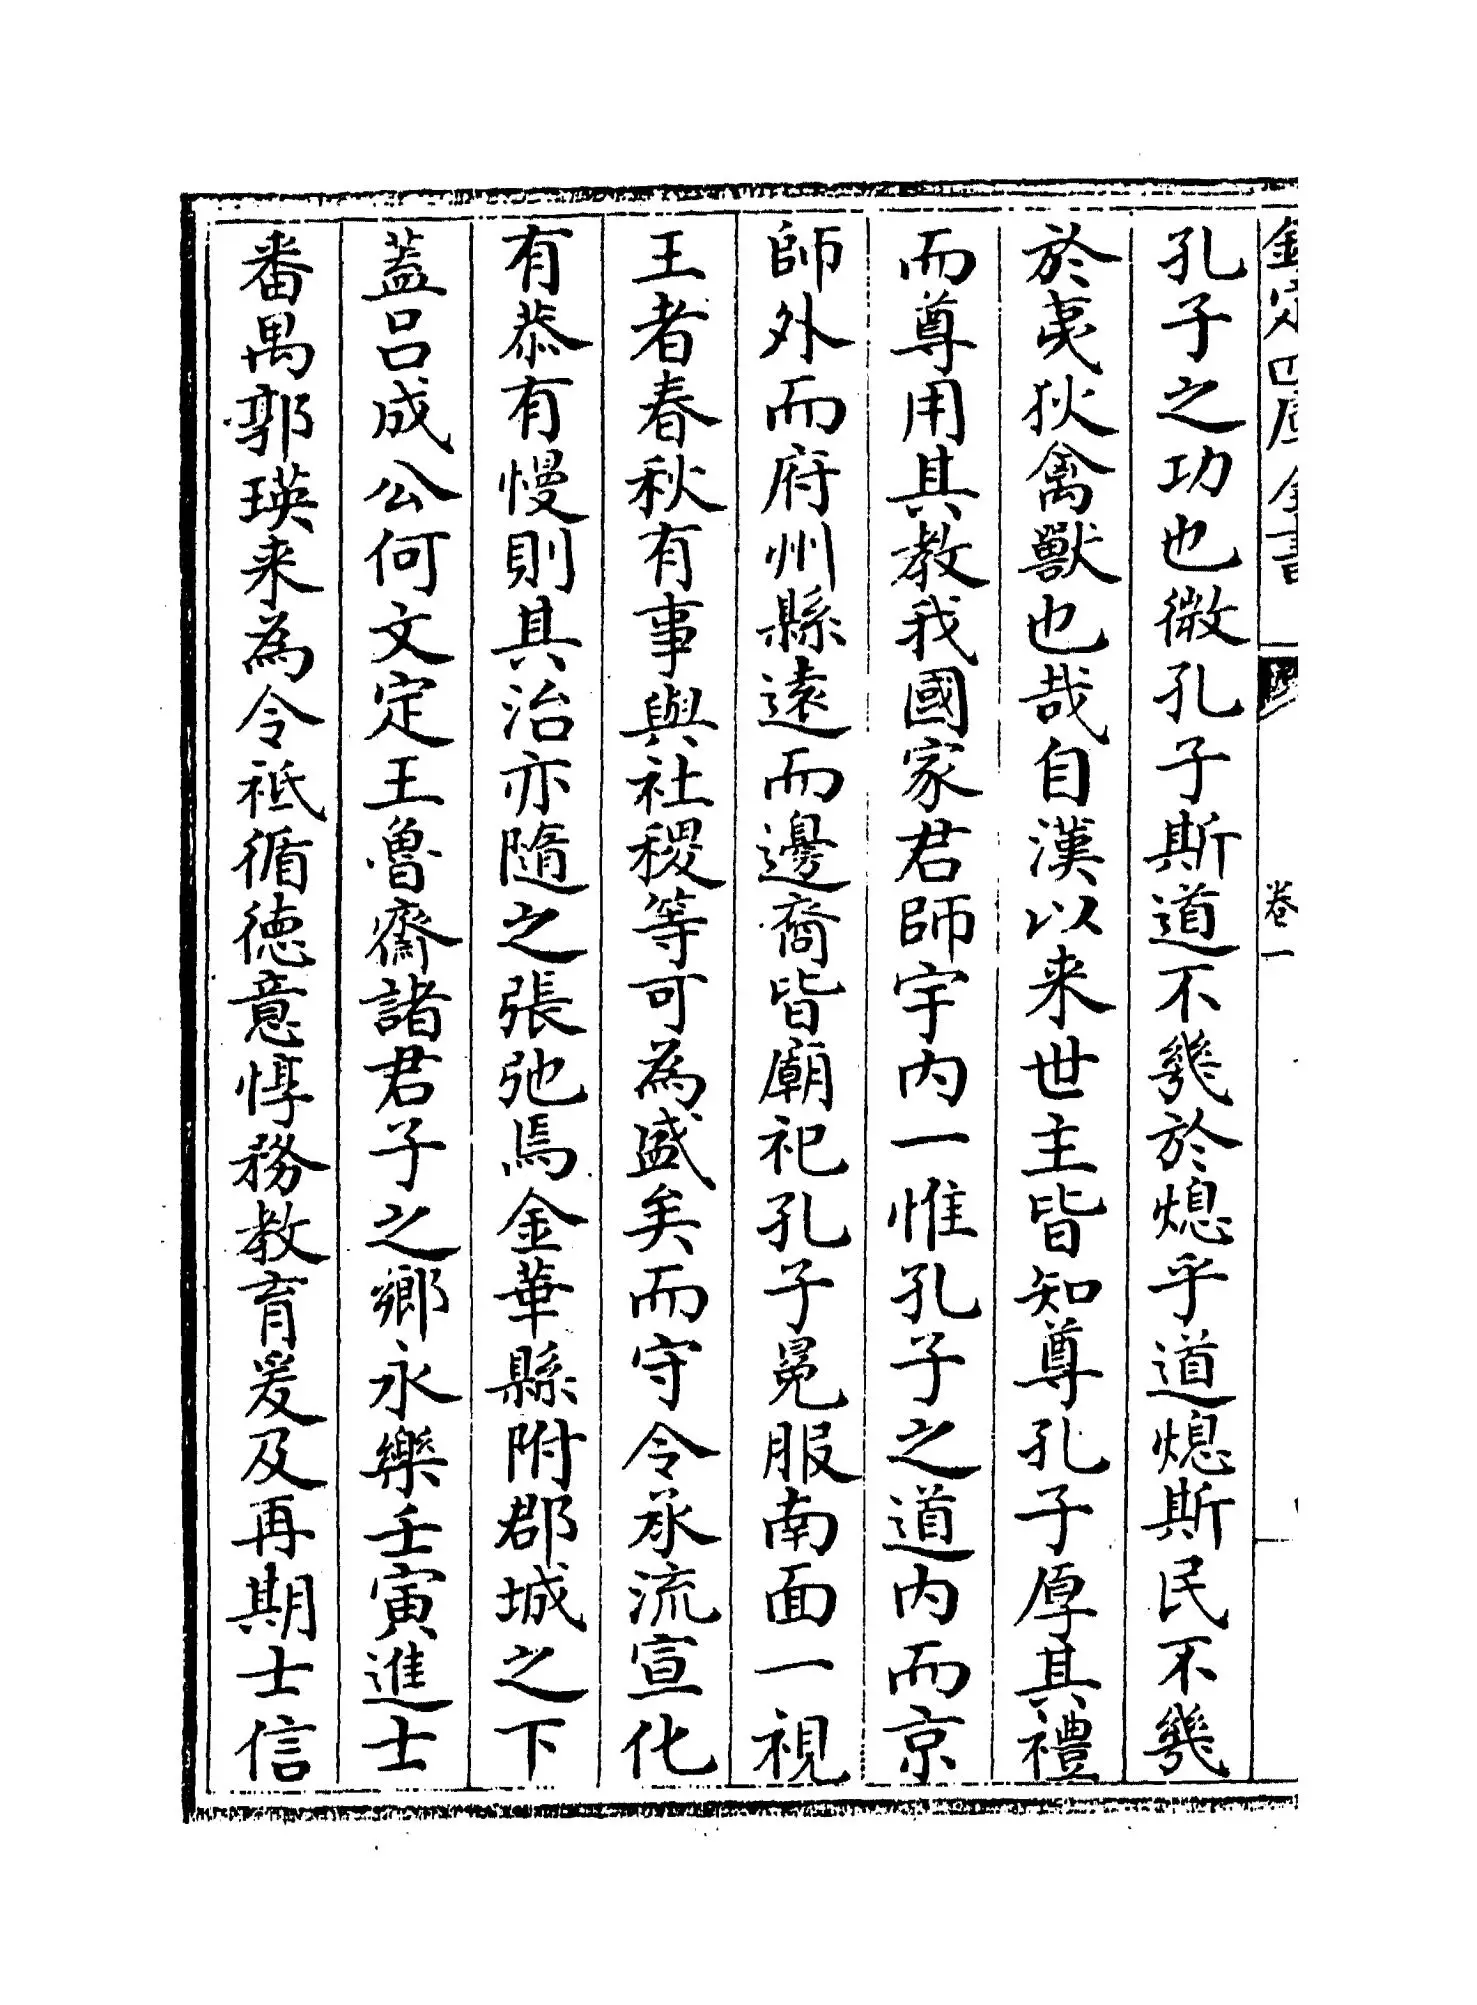 欽定四庫全書
卷一
孔子之功也微孔子斯道不幾於熄乎道熄斯民不幾
於夷狄禽獸也哉自漢以来世主皆知尊孔子厚其禮
而尊用其教我國家君師宇内一惟孔子之道内而京
師外而府州縣遠而邊裔皆廟祀孔子冕服南面一視
王者春秋有事與社稷等可為盛矣而守令承流宣化
有恭有慢則其治亦隨之張弛焉金華縣附郡城之下
蓋吕成公何文定王魯齋諸君子之鄉永樂壬寅進士
番禺郭瑛来為令祗循徳意惇務教育爰及再期士信